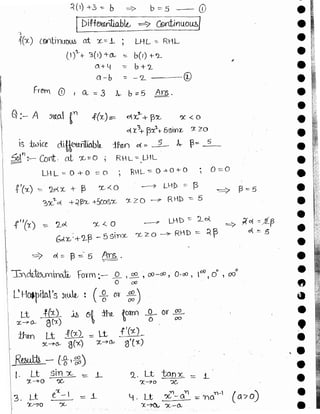 2(1)+3 = b ⇒ b = 5 — ①
Differentiable ⇒ Continuous
f(x) continuous at x=1 ; LHL = RHL
(1)² + 3(1)+a = b(1)+2
a+4 = b+2
a-b = -2 — ②
From ① , a = 3 & b = 5 Ans.
Q:- A real fⁿ f(x)= αx²+βx x<0
αx³+βx²+5sinx x≥0
is twice differentiable then α= 5 & β= 5
Solⁿ:- Cont. at x=0 ; RHL = LHL
LHL = 0+0 = 0 ; RHL = 0+0+0 ; 0=0
f'(x) = 2αx + β x<0 → LHD = β
3x²α +2βx +5cosx x≥0 → RHD = 5 ⇒ β=5
f''(x) = 2α x<0 → LHD = 2α
6αx+2β-5sinx x≥0 → RHD = 2β ⇒ 2α = 2β
α = 5
⇒ α = β = 5 Ans.
Indeterminate Form:- 0/0, ∞/∞, ∞-∞, 0·∞, 1^∞, 0⁰, ∞⁰
L'Hospital's rule : (0/0 or ∞/∞)
Lt x→a f(x)/g(x) is of the form 0/0 or ∞/∞
then Lt x→a f(x)/g(x) = Lt x→a f'(x)/g'(x)
Results - (0/0, ∞/∞)
1. Lt x→0 sin x/x = 1 2. Lt x→0 tan x/x = 1
3. Lt x→0 eˣ-1/x = 1 4. Lt x→a xⁿ-aⁿ/x-a = naⁿ⁻¹ (a>0)